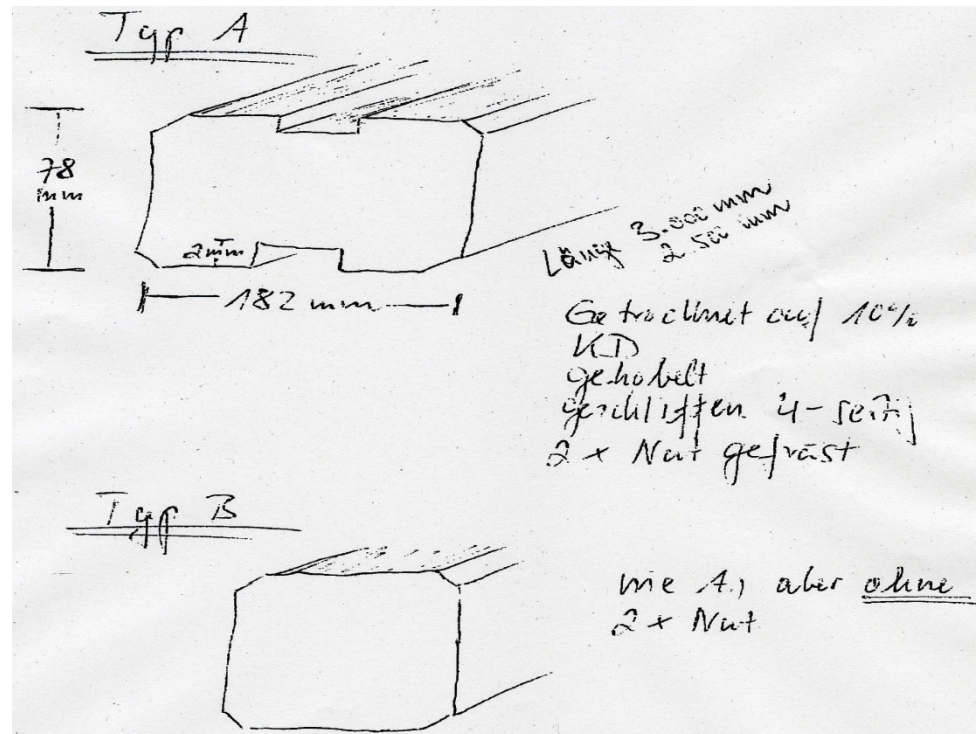 Typ A
78
mm
2mm
182 mm
Länge 3.000 mm
2.500 mm
Getrocknet auf 10%
KD
gehobelt
geschliffen 4-seitig
2 x Nut gefräst
Typ B
wie A, aber ohne
2 x Nut